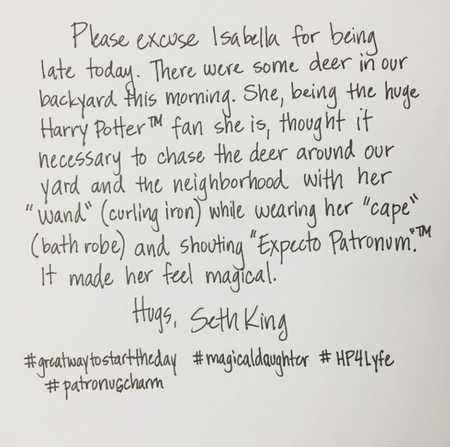 Please excuse Isabella for being
late today. There were some deer in our
backyard this morning. She, being the huge
Harry Potter™ fan she is, thought it
necessary to chase the deer around our
yard and the neighborhood with her
"wand" (curling iron) while wearing her "cape"
(bath robe) and shouting "Expecto Patronum."™
It made her feel magical.
Hugs, Seth King
#greatwaytostarttheday #magicaldaughter #HP4Lyfe
#patronuscharm